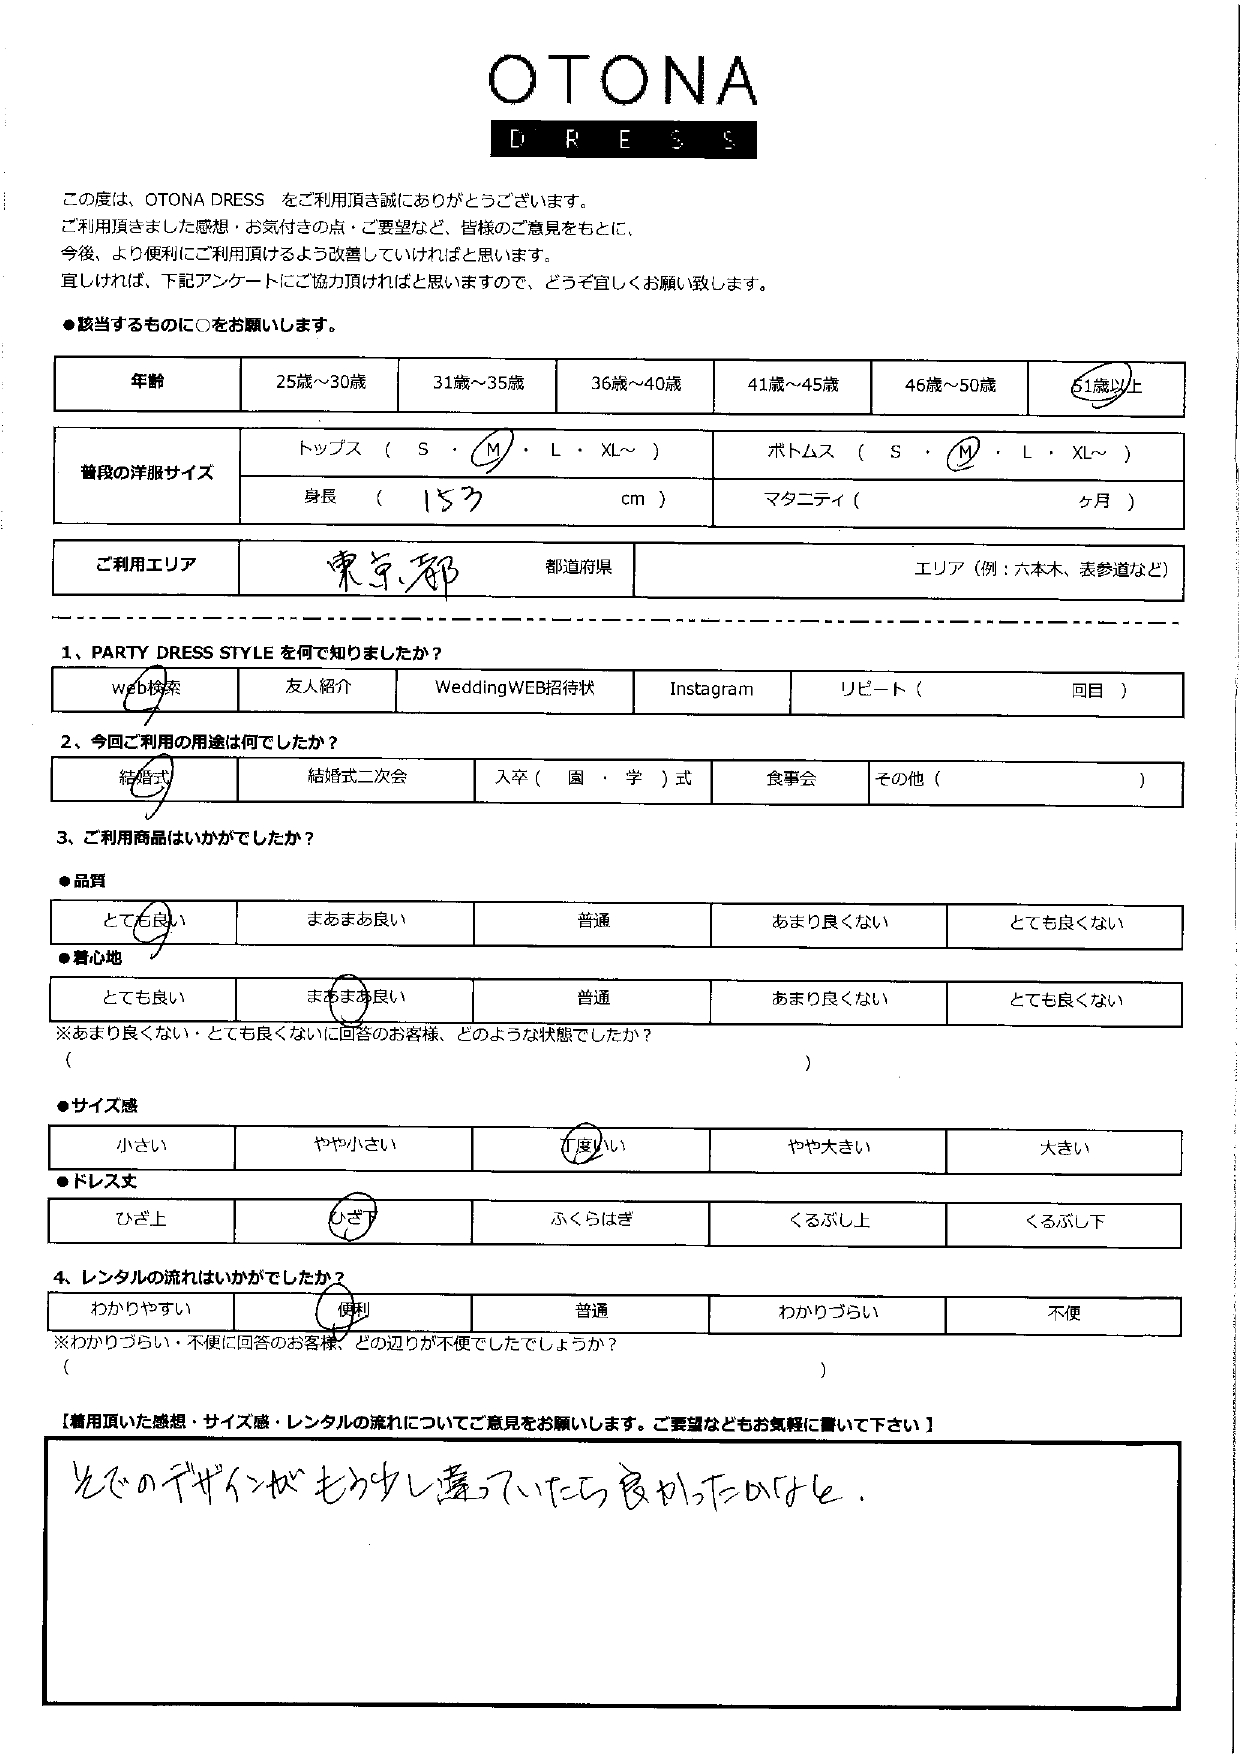 OTONA
DRESS
この度は、OTONA DRESS をご利用頂き誠にありがとうございます。
ご利用頂きました感想・お気付きの点・ご要望など、皆様のご意見をもとに、
今後、より便利にご利用頂けるよう改善していければと思います。
宜しければ、下記アンケートにご協力頂ければと思いますので、どうぞ宜しくお願い致します。
●該当するものに○をお願いします。
年齢 25歳～30歳 31歳～35歳 36歳～40歳 41歳～45歳 46歳～50歳 51歳以上
普段の洋服サイズ
トップス ( S ・ M ・ L ・ XL～ ) ボトムス ( S ・ M ・ L ・ XL～ )
身長 ( 153 cm ) マタニティ ( ヶ月 )
ご利用エリア 東京都 都道府県 エリア（例：六本木、表参道など）
1、PARTY DRESS STYLE を何で知りましたか？
web検索 友人紹介 WeddingWEB招待状 Instagram リピート ( 回目 )
2、今回ご利用の用途は何でしたか？
結婚式 結婚式二次会 入卒 ( 園 ・ 学 ) 式 食事会 その他 ( )
3、ご利用商品はいかがでしたか？
●品質
とても良い まあまあ良い 普通 あまり良くない とても良くない
●着心地
とても良い まあまあ良い 普通 あまり良くない とても良くない
※あまり良くない・とても良くないに回答のお客様、どのような状態でしたか？
( )
●サイズ感
小さい やや小さい 丁度いい やや大きい 大きい
●ドレス丈
ひざ上 ひざ下 ふくらはぎ くるぶし上 くるぶし下
4、レンタルの流れはいかがでしたか？
わかりやすい 便利 普通 わかりづらい 不便
※わかりづらい・不便に回答のお客様、どの辺りが不便でしたでしょうか？
( )
【着用頂いた感想・サイズ感・レンタルの流れについてご意見をお願いします。ご要望などもお気軽に書いて下さい】
そでのデザインがもう少し違っていたら良かったかなと.